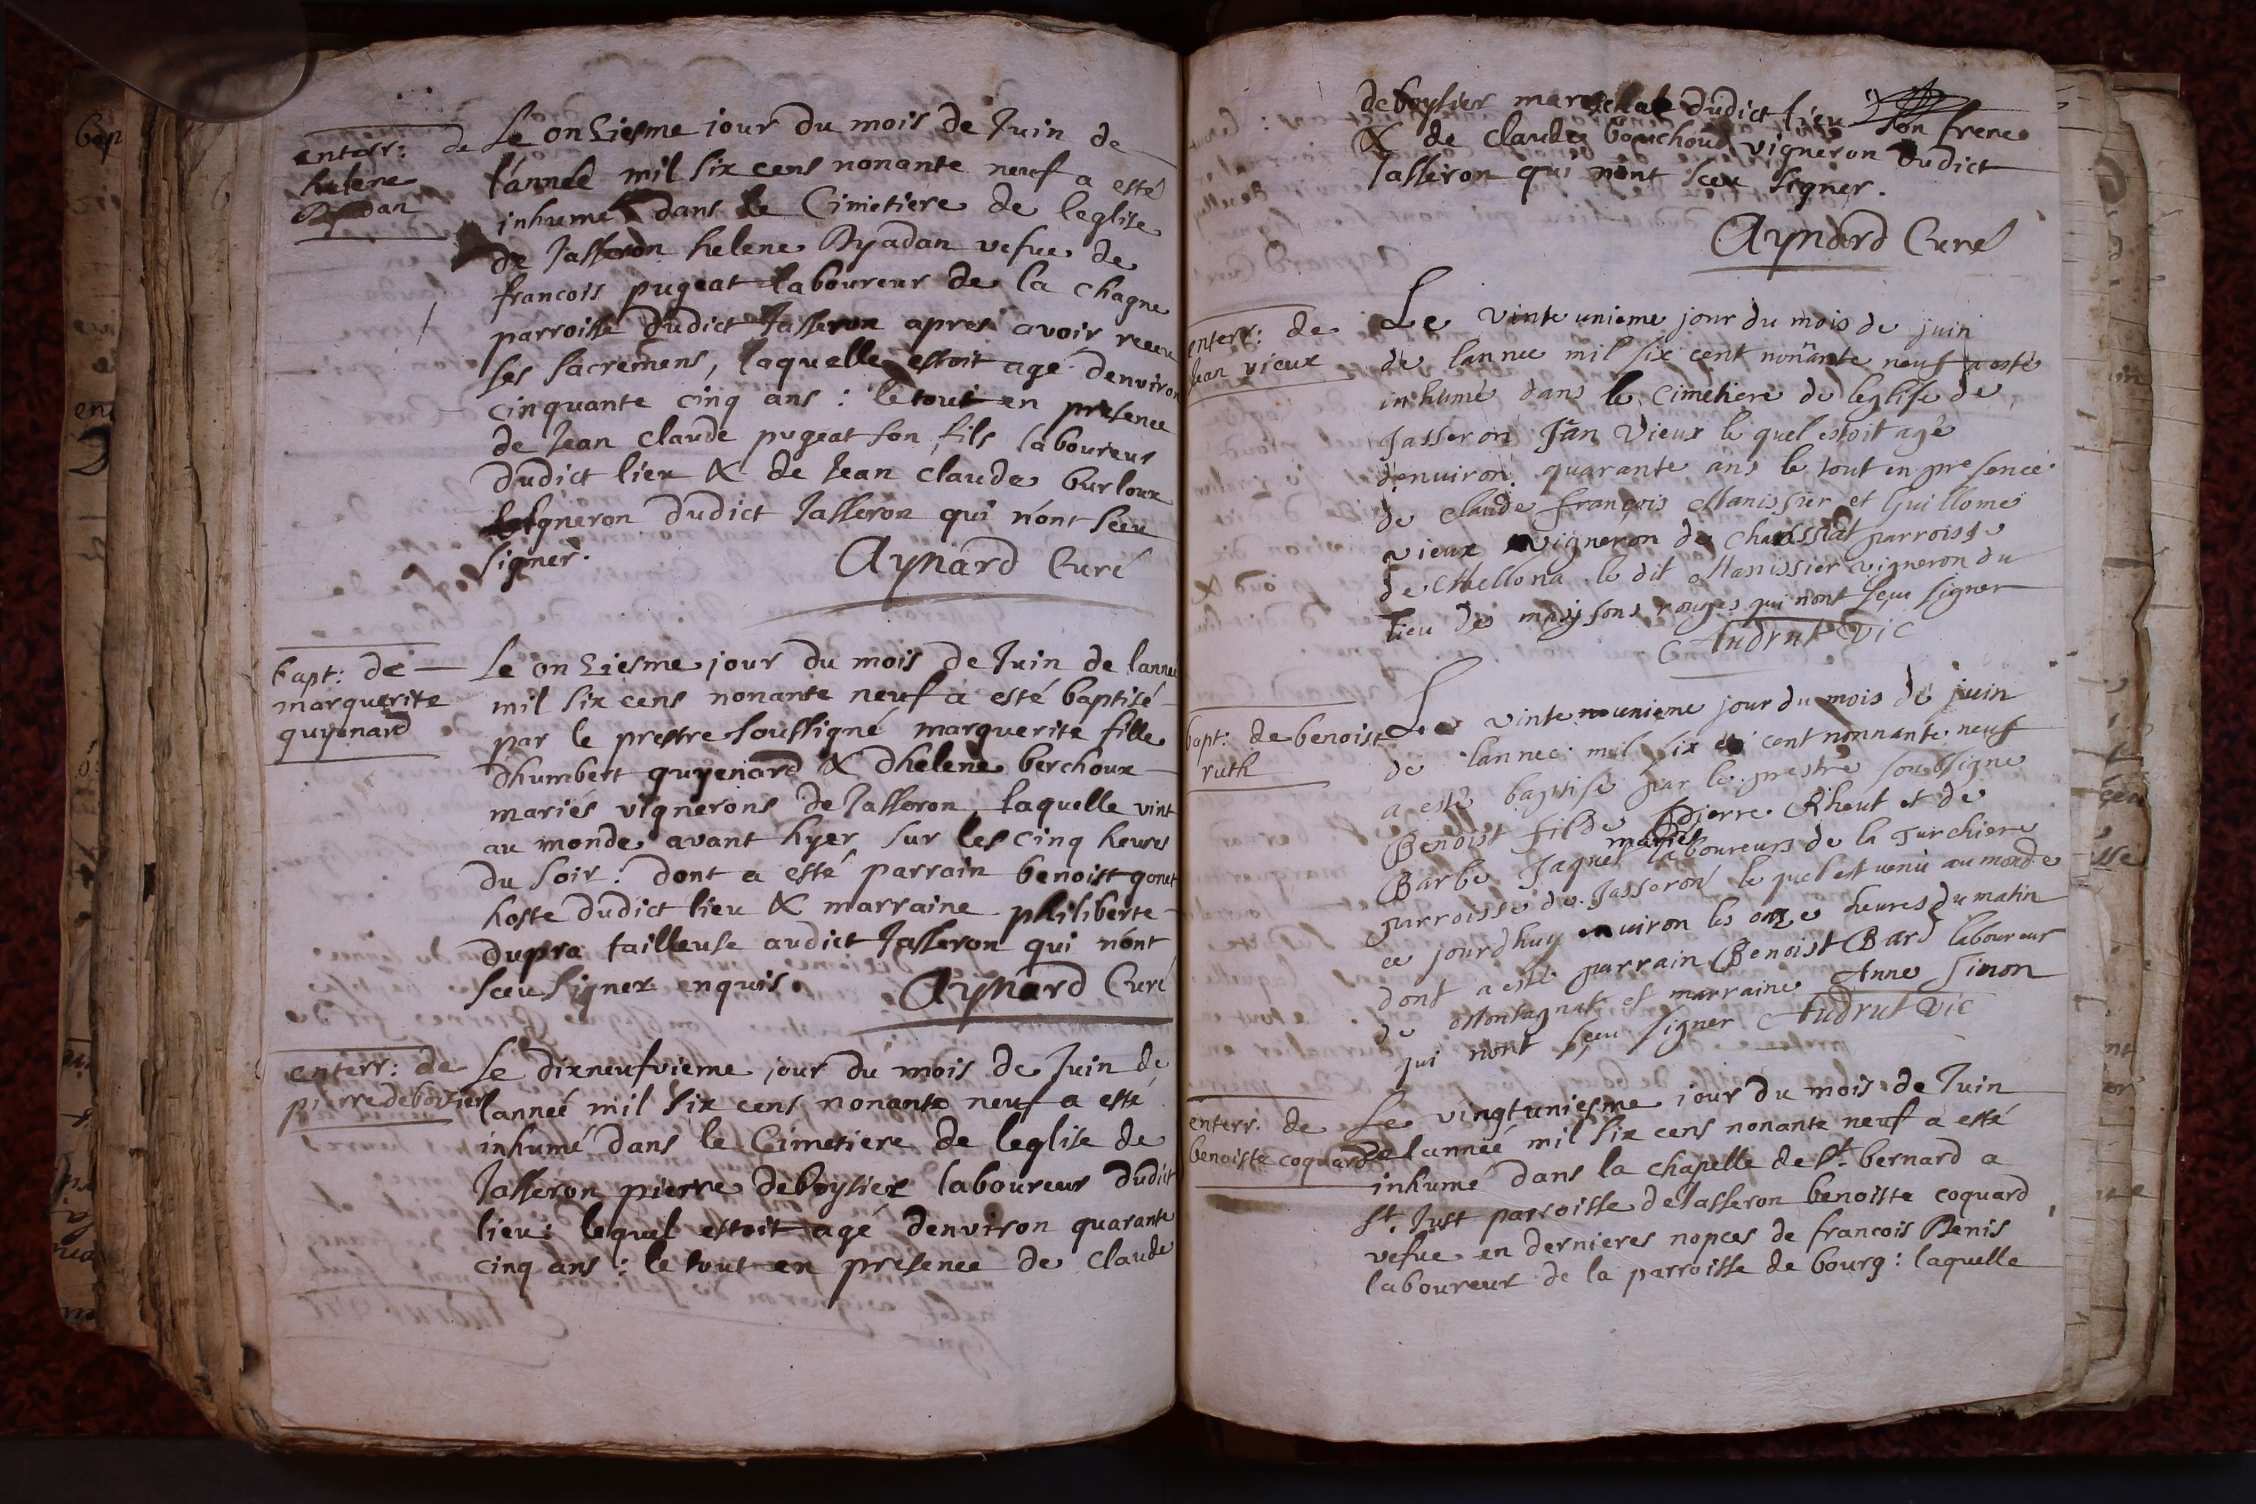 enterr: de
helene
Byadan
Le onziesme jour du mois de Juin de
l'année mil six cens nonante neuf a esté
inhumé dans le Cimetiere de leglise
de Jasseron helene Byadan vefue de
francois pugeat laboureur de la chagne
parroisse dudict Jasseron apres avoir receu
ses sacremens, laquelle estoit agé denviron
cinquante cinq ans : le tout en presence
de Jean claude pugeat son fils laboureur
dudict lieu & de Jean claude burloux
vigneron dudict Jasseron qui n'ont sceu
signer.
Aynard Curé
bapt: de
marguerite
guyenard
Le onziesme jour du mois de Juin de lannee
mil six cens nonante neuf a esté baptisé
par le prestre soussigné marguerite fille
dhumbert guyenard & dhelene berchoux
mariés vignerons de Jasseron, laquelle vint
au monde avant hyer sur les cinq heures
du soir : dont a esté parrain benoist gonet
hoste dudict lieu & marraine philiberte
dupra tailleuse audict Jasseron qui n'ont
sceu signer enquis.
Aynard Curé
enterr: de
pierre deboysier
Le dixneufvieme jour du mois de Juin de
lanneé mil six cens nonante neuf a esté
inhumé dans le Cimetiere de leglise de
Jasseron pierre deboysier laboureur dudict
lieu : lequel estoit agé denviron quarante
cinq ans : le tout en presence de claude
deboysier mareschal dudict lieu son frere
& de claude bouchoud vigneron dudict
Jasseron qui n'ont sceu signer.
Aynard Curé
enterr: de
Jean vieux
Le vinte unieme jour du mois de juin
de lannee mil six cent nonante neuf a esté
inhumé dans le cimetiere de leglise de
Jasseron Jean Vieux le quel estoit agé
denuiron quarante ans le tout en presence
de claude françois Manissier et Guillome
vieux vigneron de Chassiat parroisse
de le dit Manissier vigneron du
lieu de maissons rouges qui nont sceu signer
Audrut Vic
bapt: de benoist
ruth
Le vinte unieme jour du mois de juin
de lannee mil six cent nonnante neuf
a este baptisé par le prestre soussigne
Benoist fil de pierre Rheut et de
Barbe Jaquet mariés laboureurs de la Jurchiere
parroisse de Jasseron le quel est venu au monde
ce jourdhuy enuiron les onze heures du matin
dont a esté parrain Benoist Bard laboureur
de Montagnat et marraine Anne Simon
qui nont sceu signer Audrut Vic
enterr. de
benoiste coquard
Le vingtuniesme jour du mois de Juin
de lanneé mil six cens nonante neuf a esté
inhumé dans la chapelle de St. bernard a
St. Just parroisse de Jasseron benoiste coquard
vefue en dernieres nopces de francois Benis
laboureur de la parroisse de bourg : laquelle